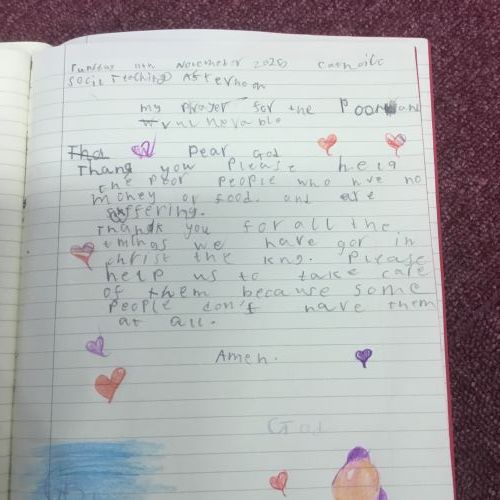 Tuesday 11th November 2025 Catholic
Social Teaching Afternoon
my Prayer for the Poor and
vulnerable
Tha Dear God
Thank you Please help
the Poor People who have no
money or food. and are
suffering.
Thank you for all the
things we have gor in
christ the kng. Please
help us to take care
of them because some
People don't have them
at all.
Amen.